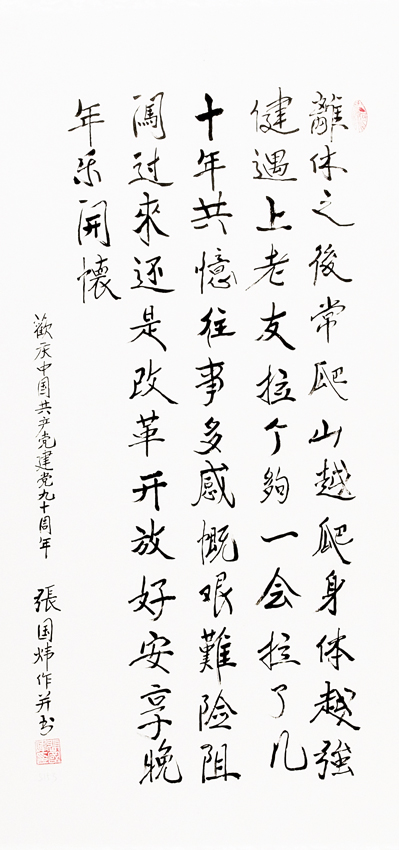 離休之後常爬山越爬身体越強
健遇上老友拉个夠一会拉了几
十年共憶往事多感慨艰難險阻
闖过來还是改革开放好安享晚
年乐開懷
歡庆中国共产党建党九十周年 張国炜作并书